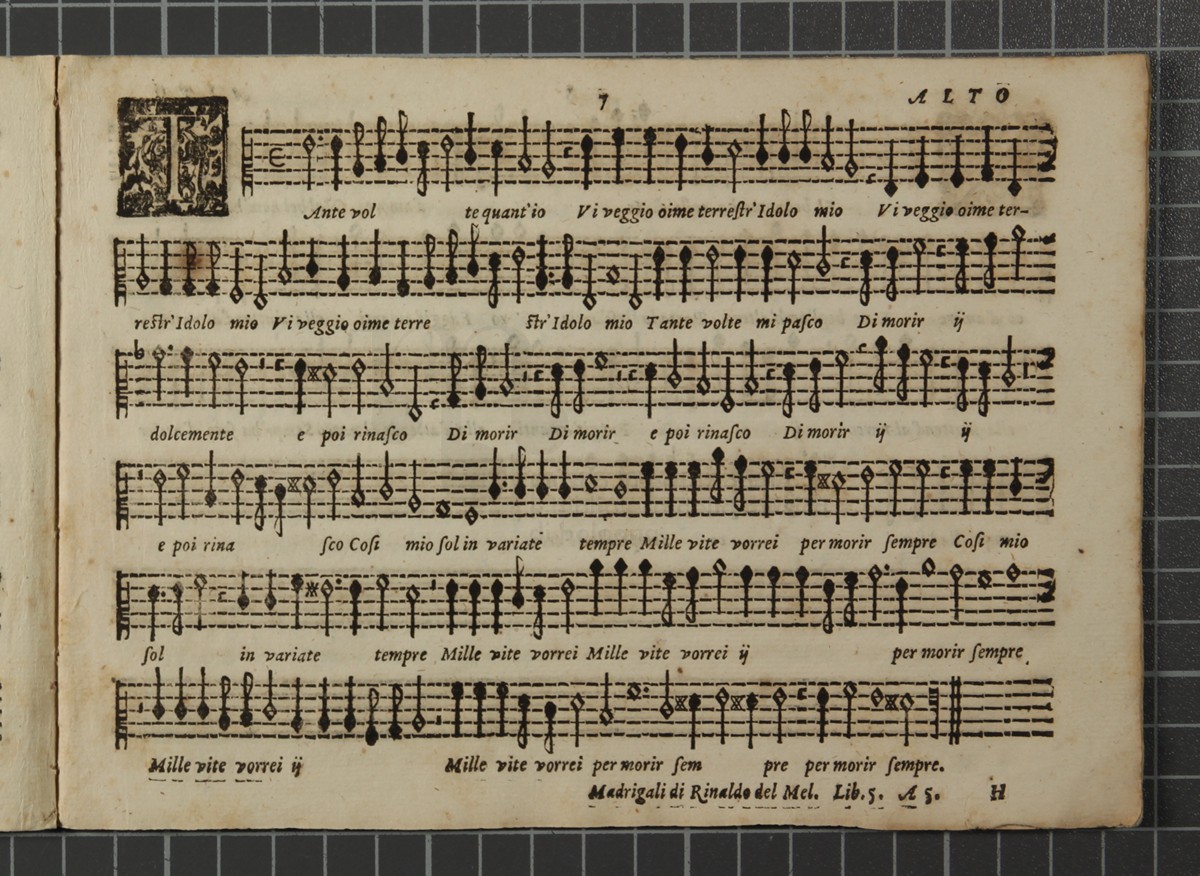 7 ALTO
TAnte vol te quant'io Vi veggio oime terreſtr'Idolo mio Vi veggio oime ter-
reſtr'Idolo mio Vi veggio oime terre ſtr'Idolo mio Tante volte mi paſco Di morir ij
dolcemente e poi rinaſco Di morir Di morir e poi rinaſco Di morir ij ij
e poi rina ſco Coſi mio ſol in variate tempre Mille vite vorrei per morir ſempre Coſi mio
ſol in variate tempre Mille vite vorrei Mille vite vorrei ij per morir ſempre,
Mille vite vorrei ij Mille vite vorrei per morir ſem pre per morir ſempre.
Madrigali di Rinaldo del Mel. Lib. 5. A 5. H